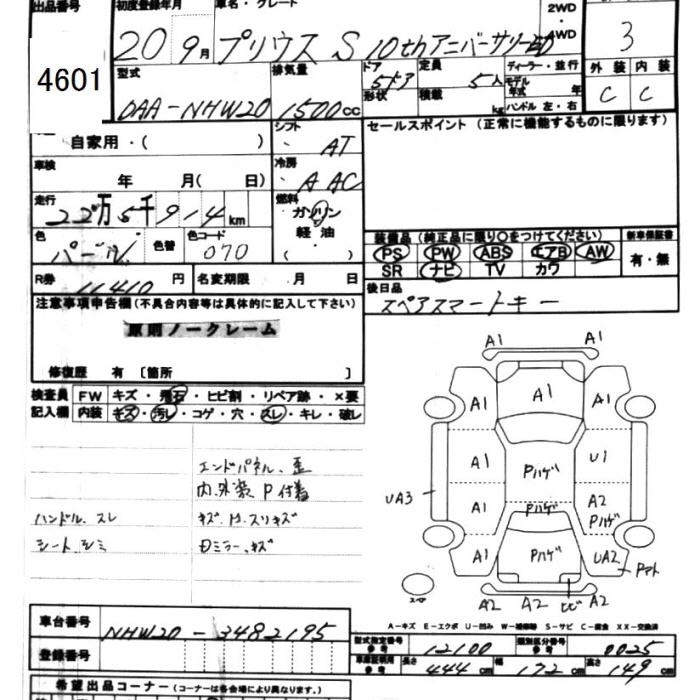 出品番号
4601
初度登録年月
20 9月
車名・グレード
プリウス S 10thアニバーサリーED
2WD・4WD
3
型式
DAA-NHW20
排気量
1500cc
ドア 形状
5ドア
定員
5人
積載
kg
ディーラー・並行
モデル年式 年
ハンドル 左・右
外装 内装
C C
自家用・( )
シフト
AT
セールスポイント(正常に機能するものに限ります)
車検
年 月( 日)
冷房
AAC
走行
22万5千914km
燃料
ガソリン
軽油
( )
色
パール
色替
色コード
070
装備品(純正品に限り○をつけてください)
PS PW ABS エアB AW
SR ナビ TV カワ
新車保証書
有・無
R券
11410円
名変期限 月 日
後日品
スペアスマートキー
注意事項申告欄(不具合内容等は具体的に記入して下さい)
原則ノークレーム
修復歴 有 〔箇所 〕
検査員記入欄
FW キズ・飛石・ヒビ割・リペア跡・×要
内装 キズ・汚レ・コゲ・穴・スレ・キレ・破レ
エンドパネル、歪
内.外装 P付着
ハンドル.スレ
キズ.H.スリキズ
シート.シミ
Dミラー.キズ
A1
A1
A1 A1 A1
A1 Pハゲ U1
UA3 A1 Pハゲ A2 Pハゲ
A1 Pハゲ UA2 Pマト
スペア
A2 A2 ヒビ A2
A-キズ E-エクボ U-凹み W-補修跡 S-サビ C-腐食 XX-交換済
車台番号
NHW20-3482195
登録番号
型式指定番号
12100
類別区分番号
0025
車庫証明用参考
長さ 444cm 幅 172cm 高さ 149cm
希望出品コーナー(コーナーは各会場により異なります。)